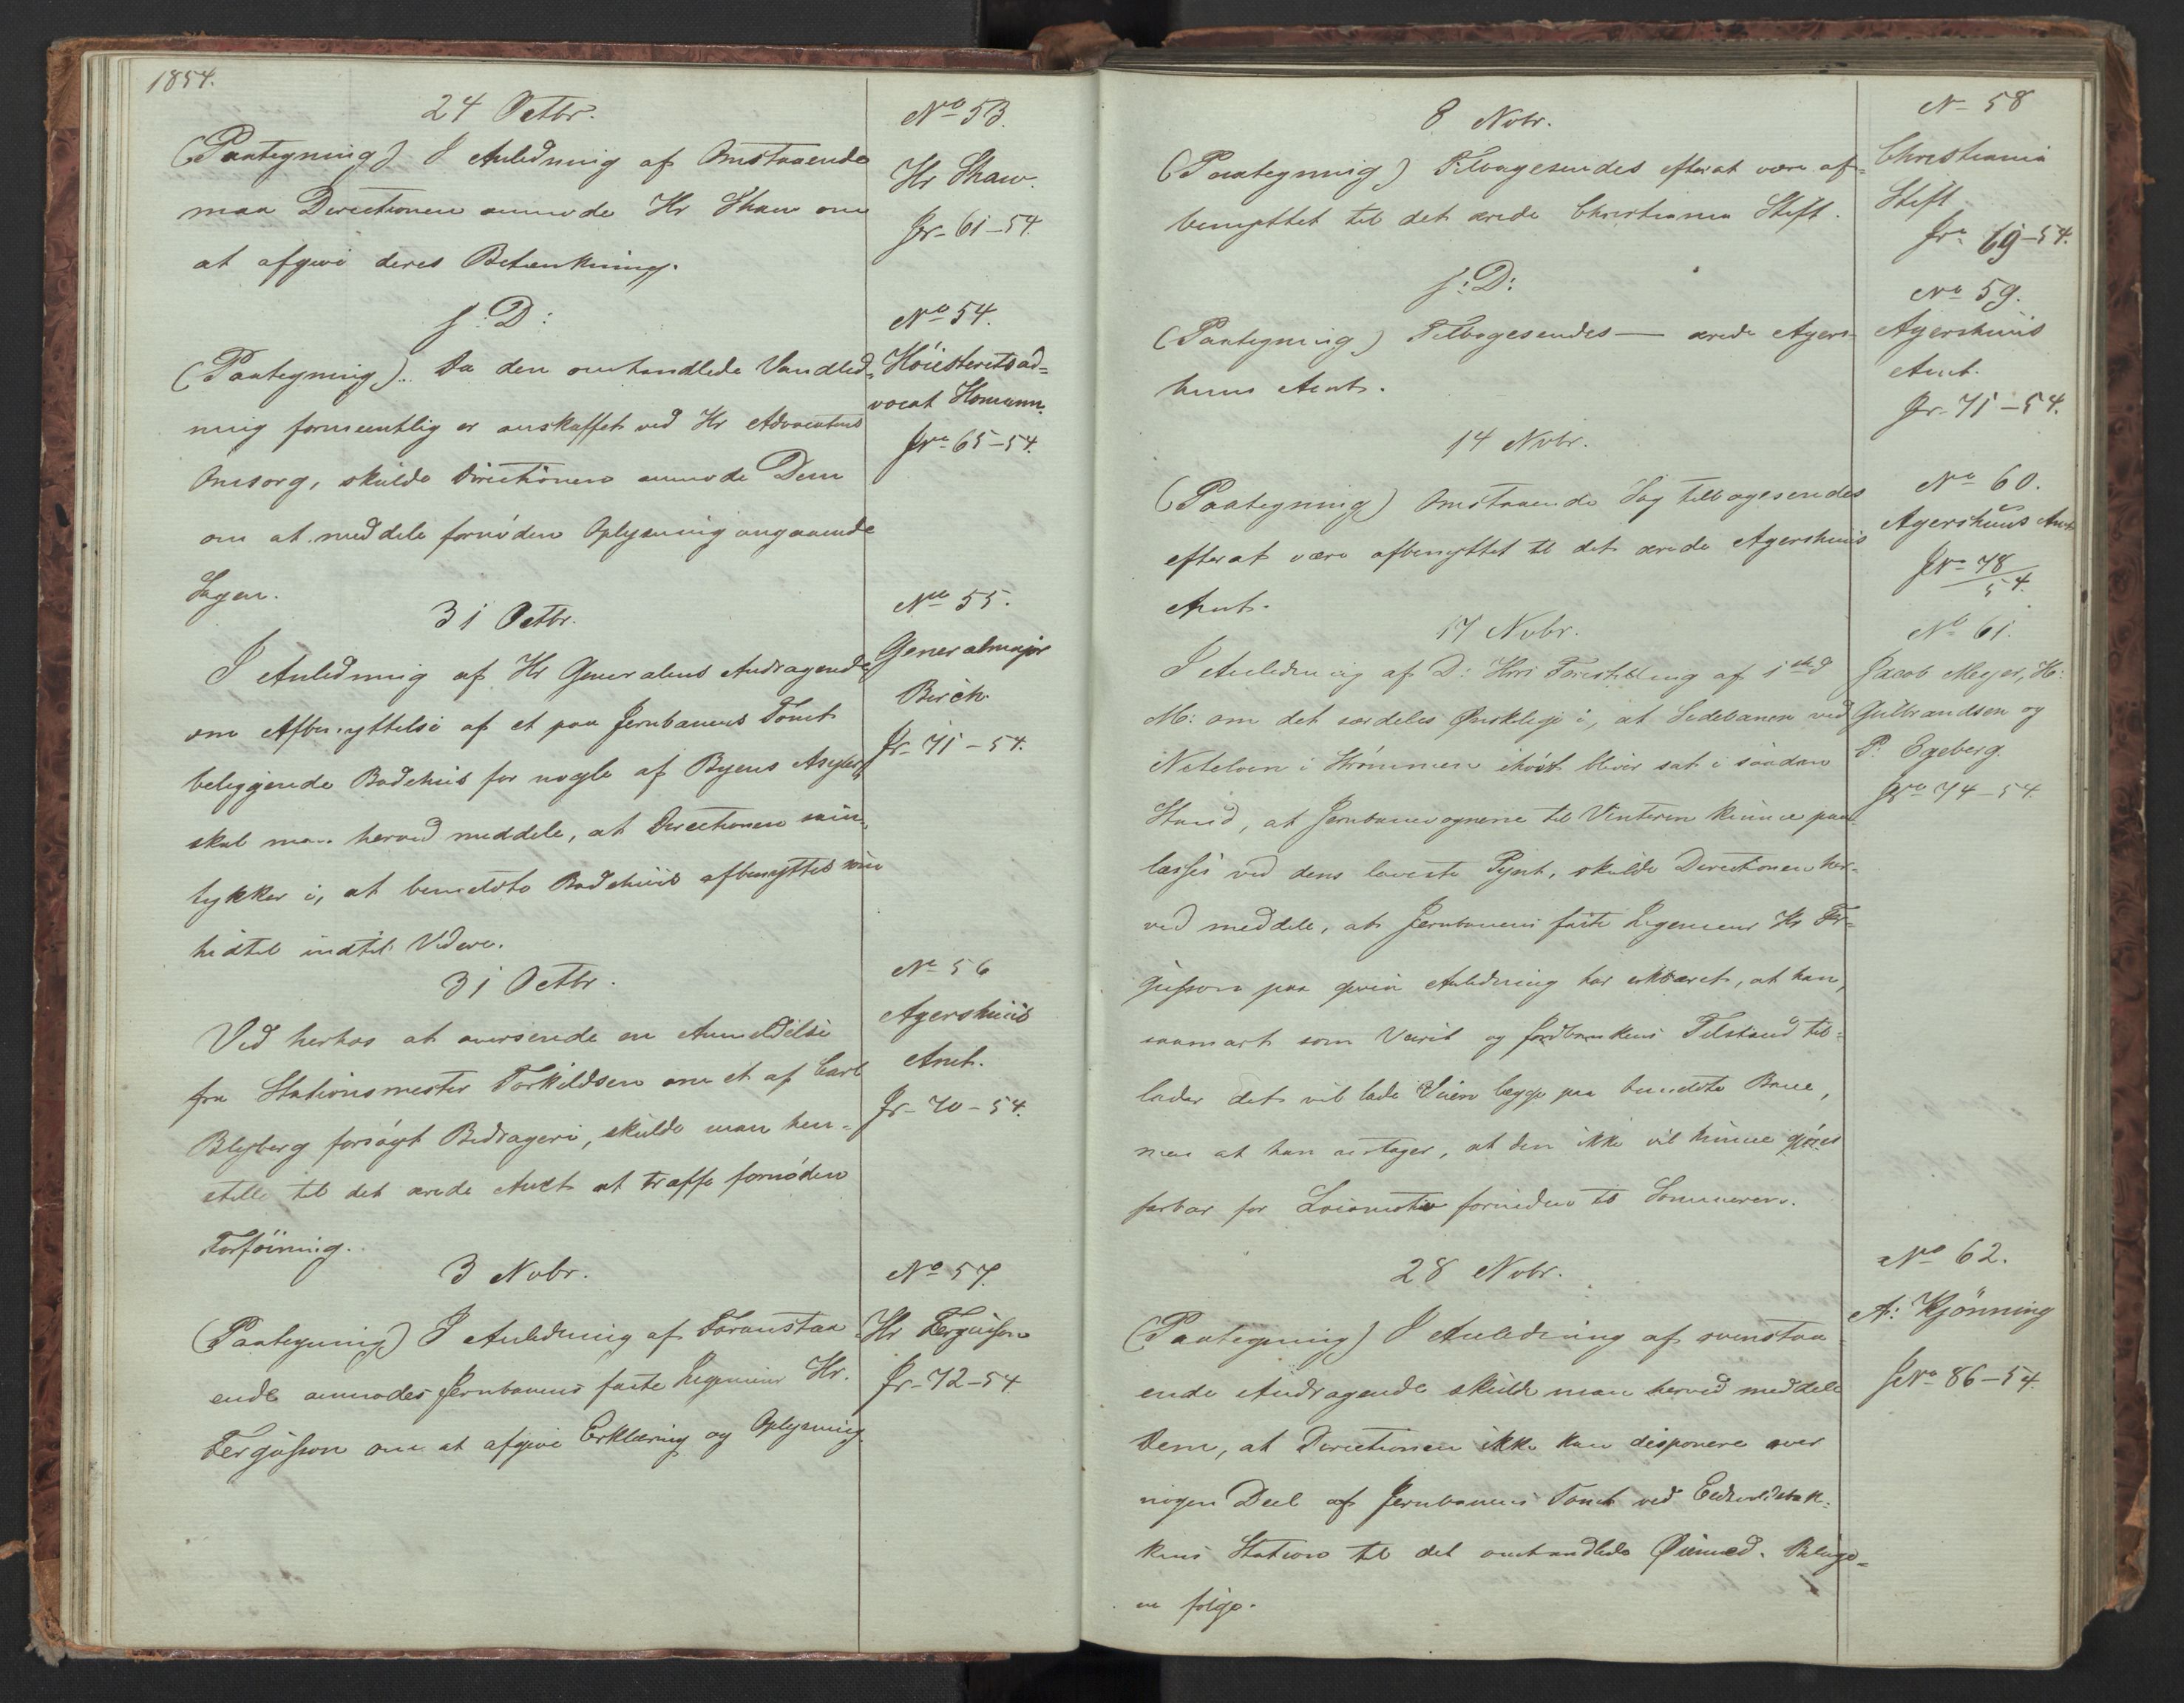 1854.
24 Octbr.
(Paategning) I Anledning af Omstaaende
maa Directionen anmode Hr Shaw om
at afgive deres Betænkning.
No 53.
Hr Shaw.
Jr- 61-54.
s. D:
(Paategning). Da den omhandlede Vandled=
ning formeentlig er anskaffet ved Hr Advocatens
Omsorg, skulde Directionen anmode Dem
om at meddele fornöden Oplysning angaaende
Sagen.
No 54.
Höiesteretsad=
vocat Homann.
Jr- 65-54.
31 Octbr.
I Anledning af Hr Generalens Andragende
om Afbenyttelse af et paa Jernbanens Tomt
beliggende Badehuus for nogle af Byens Asyler,
skal man herved meddele, at Directionen sam=
tykker i, at bemeldte Badehuus afbenyttes som
hidtil indtil Videre.
No 55.
Generalmajor
Birch.
Jr- 71-54.
31 Octbr.
Ved herhos at oversende en Anmeldelse
fra Stationsmester Torkildsen om et af Carl
Blyberg forsögt Bedrageri, skulde man hen=
stille til det ærede Amt at træffe fornöden
Forföining.
No 56
Agershuus
Amt.
Jr- 70-54.
3 Novbr.
(Paategning) I Anledning af Foranstaa=
ende anmodes Jernbanens faste Ingenieur Hr.
Fergusson om at afgive Erklæring og Oplysning.
No 57.
Hr Fergusson
Jr- 72-54.
8 Novbr.
(Paategning) Tilbagesendes efterat være af=
benyttet til det ærede Christiania Stift.
N- 58
Christiania
Stift
Jr- 69-54.
s: D:
(Paategning) Tilbagesendes — ærede Agers=
huus Amt.
No 59.
Agershuus
Amt.
Jr- 71-54.
14 Novbr.
(Paategning) Omstaaende Sag tilbagesendes
efterat være afbenyttet til det ærede Agershuus
Amt.
No 60.
Agershuus Amt
Jr- 78/54.
17 Novbr.
I Anledning af D: Hrr: Forestilling af 1ste d
M: om det særdeles Önskelige i, at Sidebanen ved
Nitelven i Strömmen ihöst bliver sat i saadan
Stand, at Jernbanevognene til Vinteren kunne paa=
læsses ved dens laveste Pynt, skulde Directionen her=
ved meddele, at Jernbanens faste Ingenieur Hr Fer=
gusson paa given Anledning har erklæret, at han,
saasnart som Veiret og Jordbankens Tilstand til=
lader det vil lade Veien lægge paa bemeldte Bane,
men at han antager, at den ikke vil kunne gjöres
farbar for Locomotiv forinden til Sommeren.
No 61.
Jacob Meyer, H:
Gulbrandsen og
P. Egeberg.
Jr- 74-54
28 Novbr.
(Paategning) I Anledning af ovenstaa=
ende Andragende skulde man herved meddele
Dem, at Directionen ikke kan disponere over
nogen Deel af Jernbanens Tomt ved Eidsvoldsbak=
kens Station til det omhandlede Öiemed. Bilage=
ne fölge.
No 62.
A: Kjönning
Jr- 86-54.